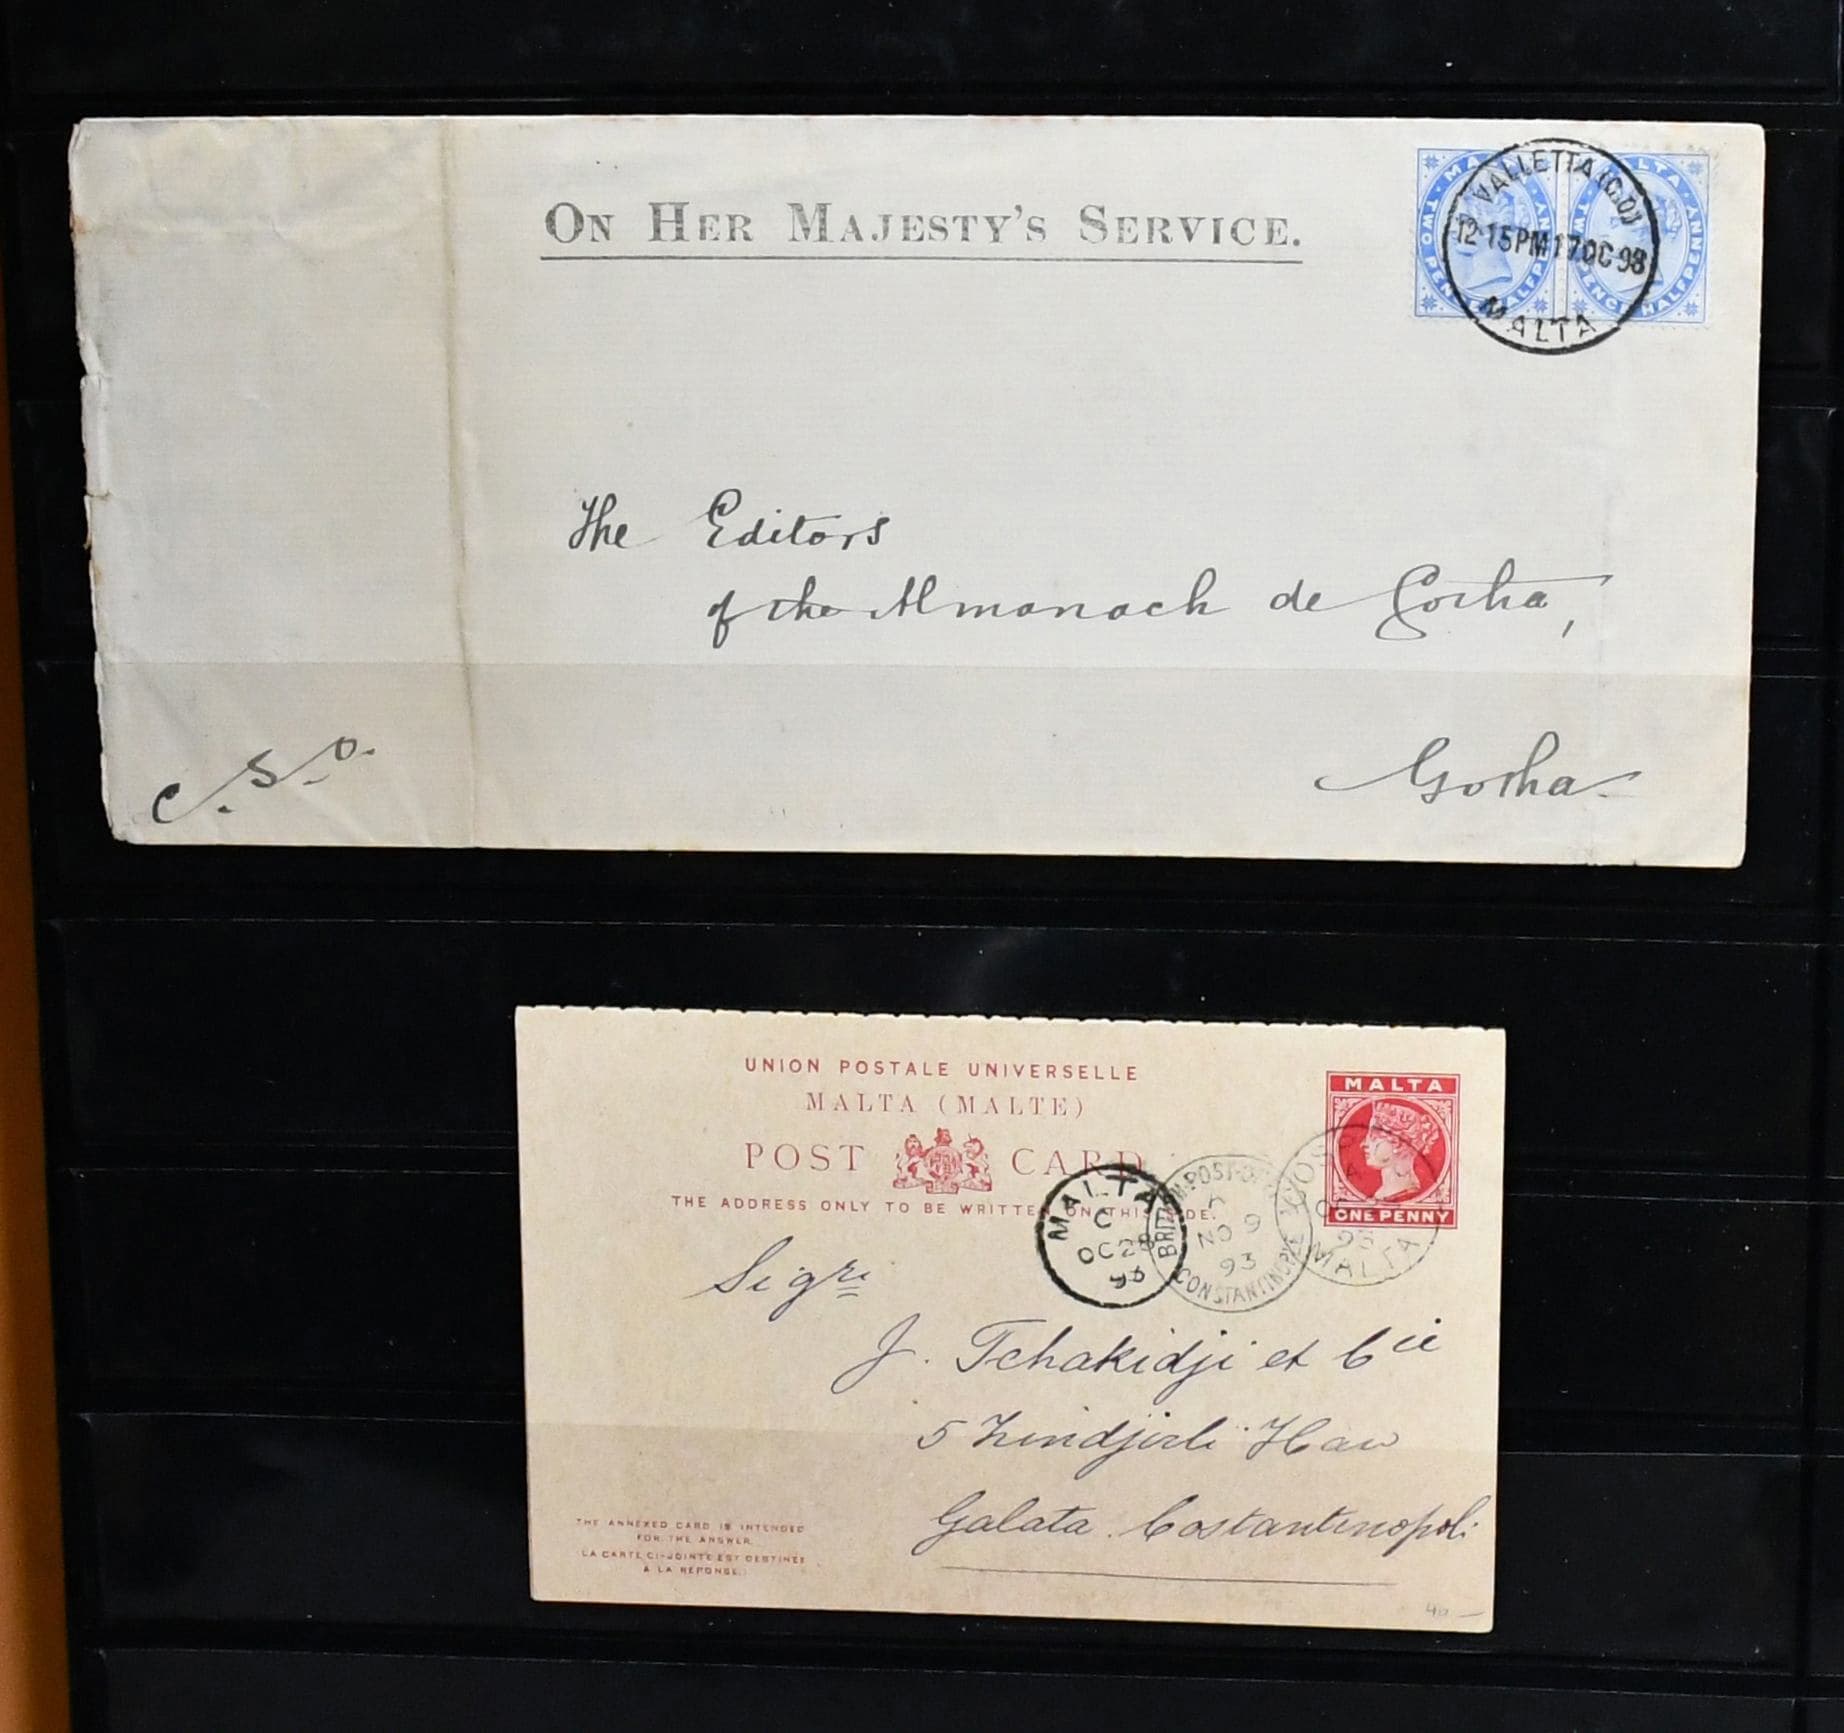 On Her Majesty's Service.
MALTA TWO PENCE HALFPENNY
MALTA TWO PENCE HALFPENNY
VALLETTA (G.O)
12·15PM 17 OC 98
MALTA
The Editors
of the Almanach de Gotha,
Gotha
C.S.O.
UNION POSTALE UNIVERSELLE
MALTA (MALTE)
POST CARD
THE ADDRESS ONLY TO BE WRITTEN ON THIS SIDE.
MALTA
ONE PENNY
MALTA
C
OC 28
93
BRITISH POST-OFFICE
NO 9
93
CONSTANTINOPLE
MALTA
Sigri
J. Tchakidji et Cie
5 Zindjirli Han
Galata. Costantinopoli
THE ANNEXED CARD IS INTENDED
FOR THE ANSWER.
LA CARTE CI-JOINTE EST DESTINÉE
À LA RÉPONSE.
40 —